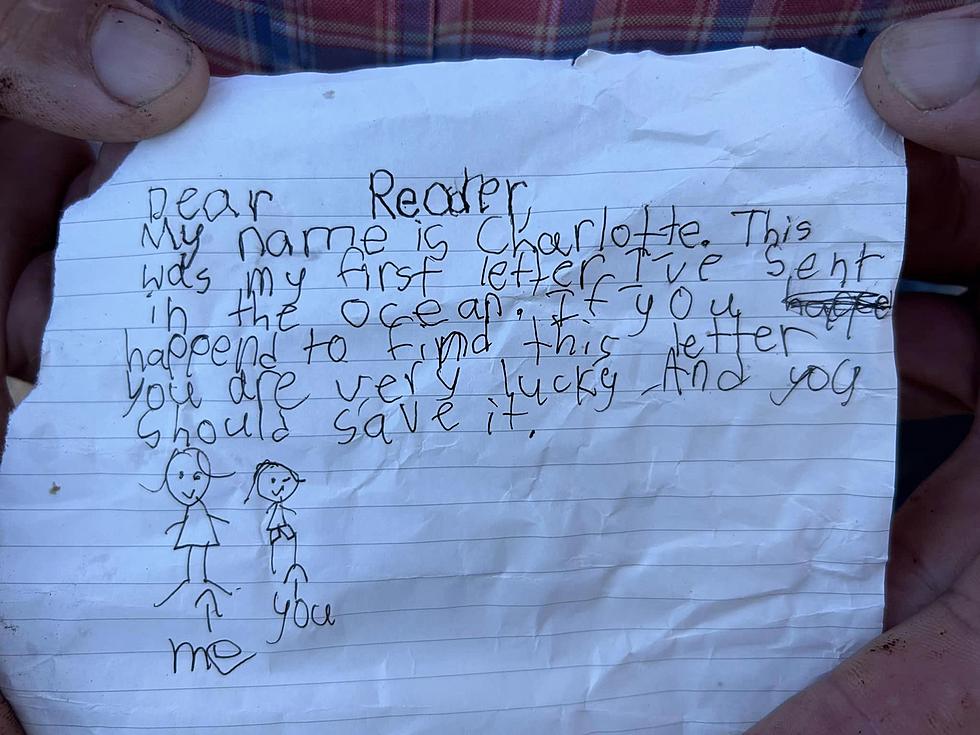 Dear Reader,
My name is Charlotte. This
was my first letter I've sent
in the ocean. If you
happend to find this letter
you are very lucky And you
should save it.
you
me